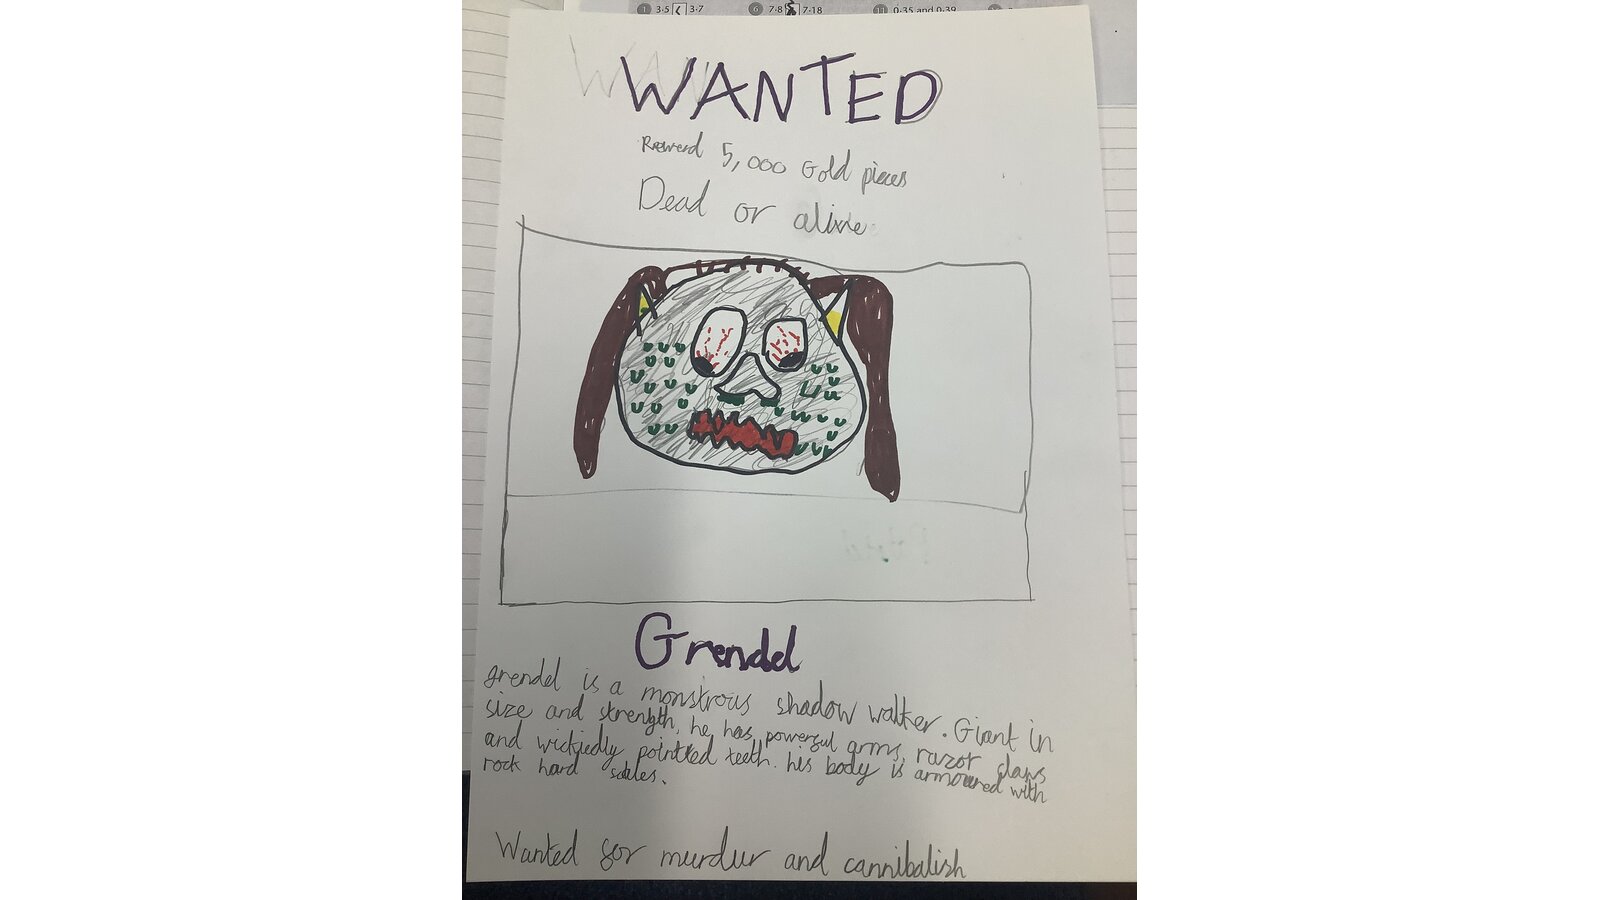 1 3·5 < 3·7 6 7·8 7·18 11 0·35 and 0·39
WAN
WANTED
Reward 5,000 Gold pieces
Dead or alive
Grendel
grendel is a monstrous shadow walker. Giant in
size and strength, he has powerful arms, razor claws
and wickiedly pointed teeth. his body is armoured with
rock hard scales.
Wanted for murdur and cannibalish